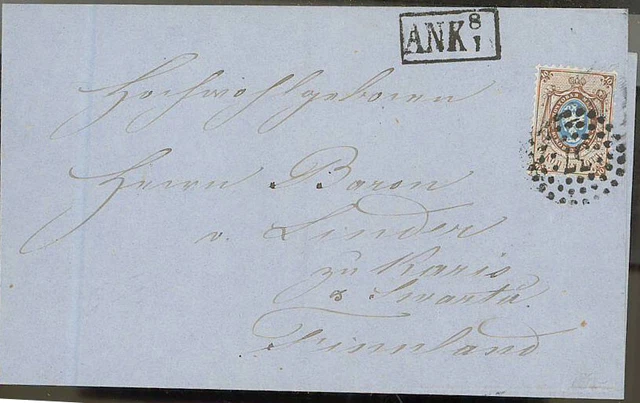 ANK 8/1
Hochwohlgeboren
Herrn Baron
v. Linder
zu Karis
Svartå
Finnland